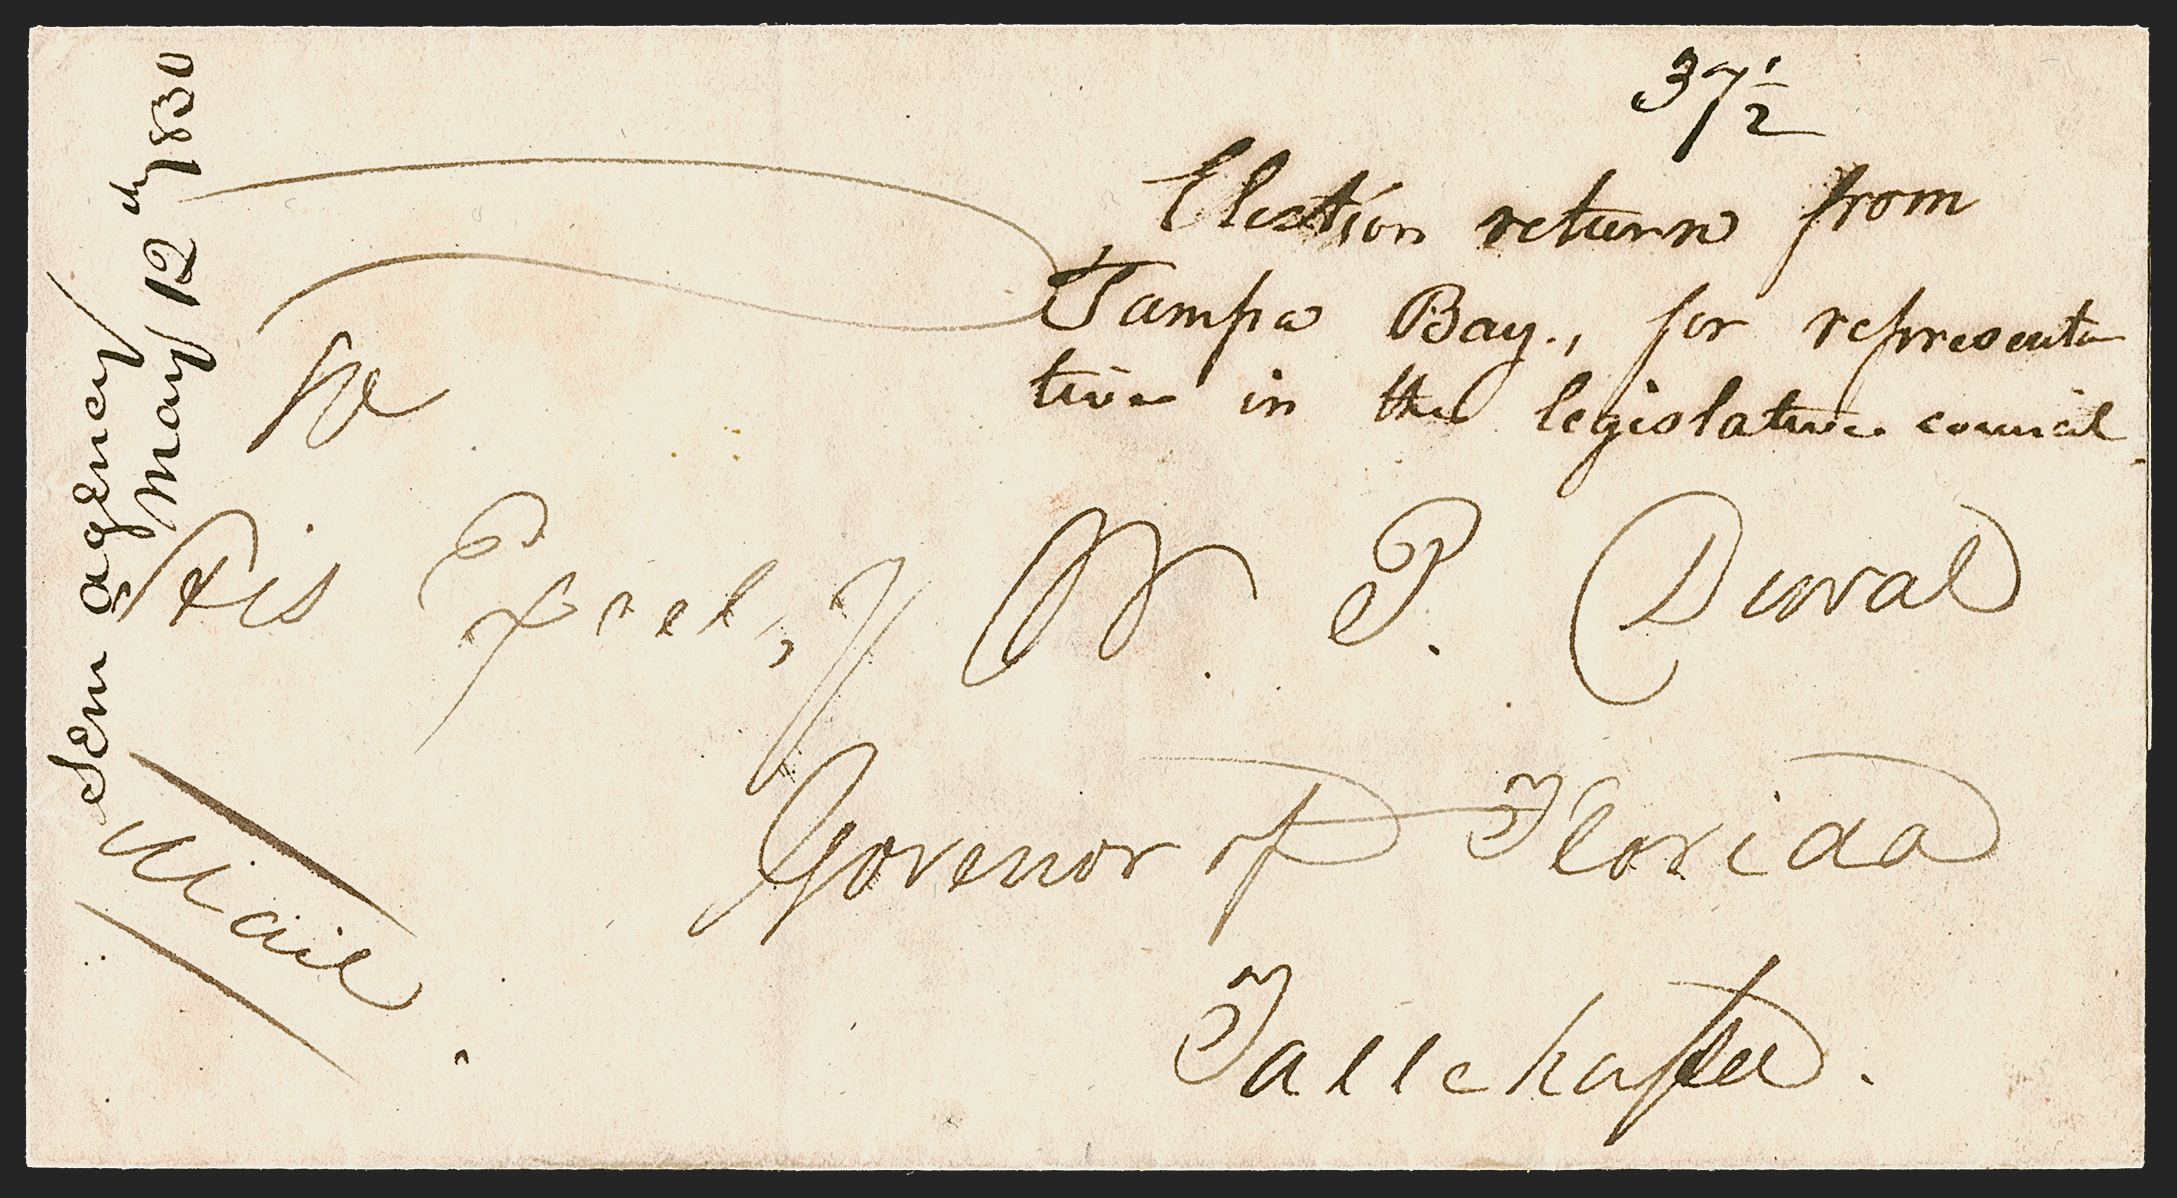 37 1/2
Election return from
Tampa Bay., for representa
tive in the legislative council.
Sem agency
May 12th 1830
To
His Excel,y W. P. Duval
Govenor of Florida
Tallehassee.
Mail.